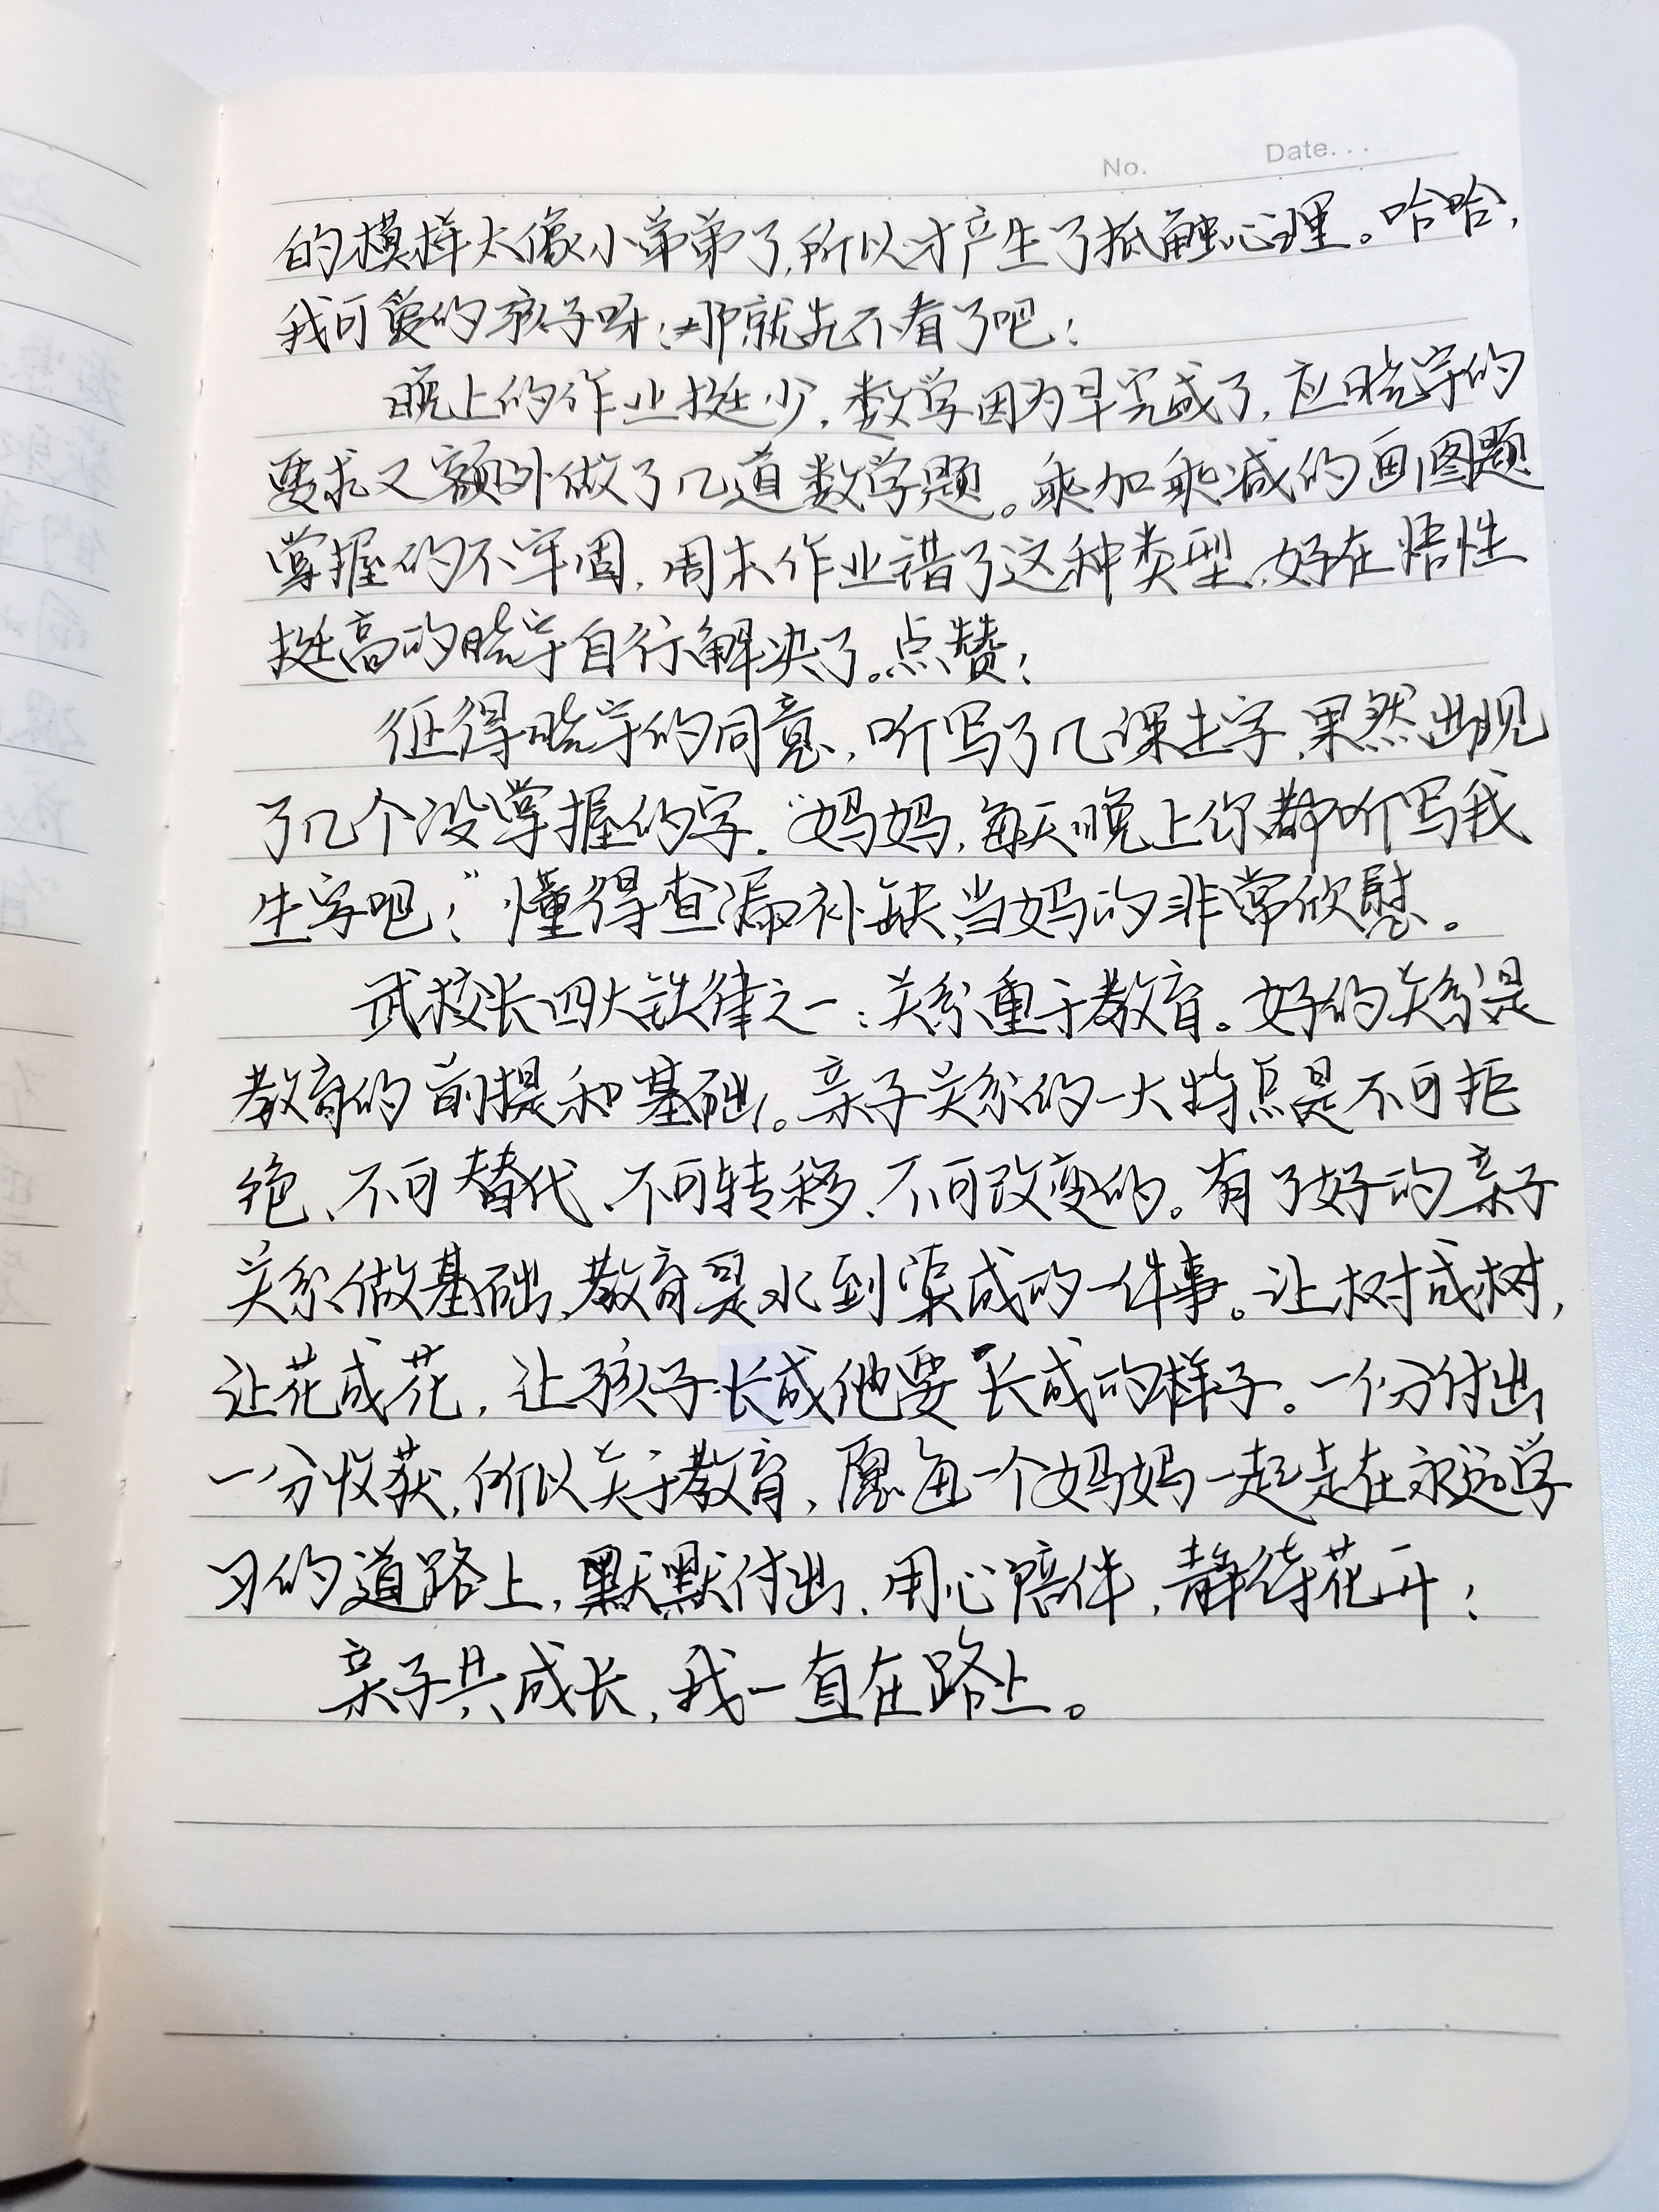 No. Date...
的模样太像小弟弟了,所以才产生了抵触心理。哈哈,
我可爱的孩子呀!那就先不看了吧!
晚上的作业挺少,数学因为早完成了,应晓宇的
要求又额外做了几道数学题。乘加乘减的画图题
掌握的不牢固,周末作业错了这种类型,好在悟性
挺高的晓宇自行解决了。点赞!
征得晓宇的同意,听写了几课生字,果然出现
了几个没掌握的字.“妈妈,每天晚上你都听写我
生字吧!”懂得查漏补缺,当妈的非常欣慰。
武校长四大铁律之一:关系重于教育。好的关系是
教育的前提和基础。亲子关系的一大特点是不可拒
绝、不可替代、不可转移、不可改变的。有了好的亲子
关系做基础,教育是水到渠成的一件事。让树成树,
让花成花,让孩子长成他要长成的样子。一份付出
一分收获,所以关于教育,愿每一个妈妈一起走在永远学
习的道路上,默默付出、用心陪伴,静待花开!
亲子共成长,我一直在路上。